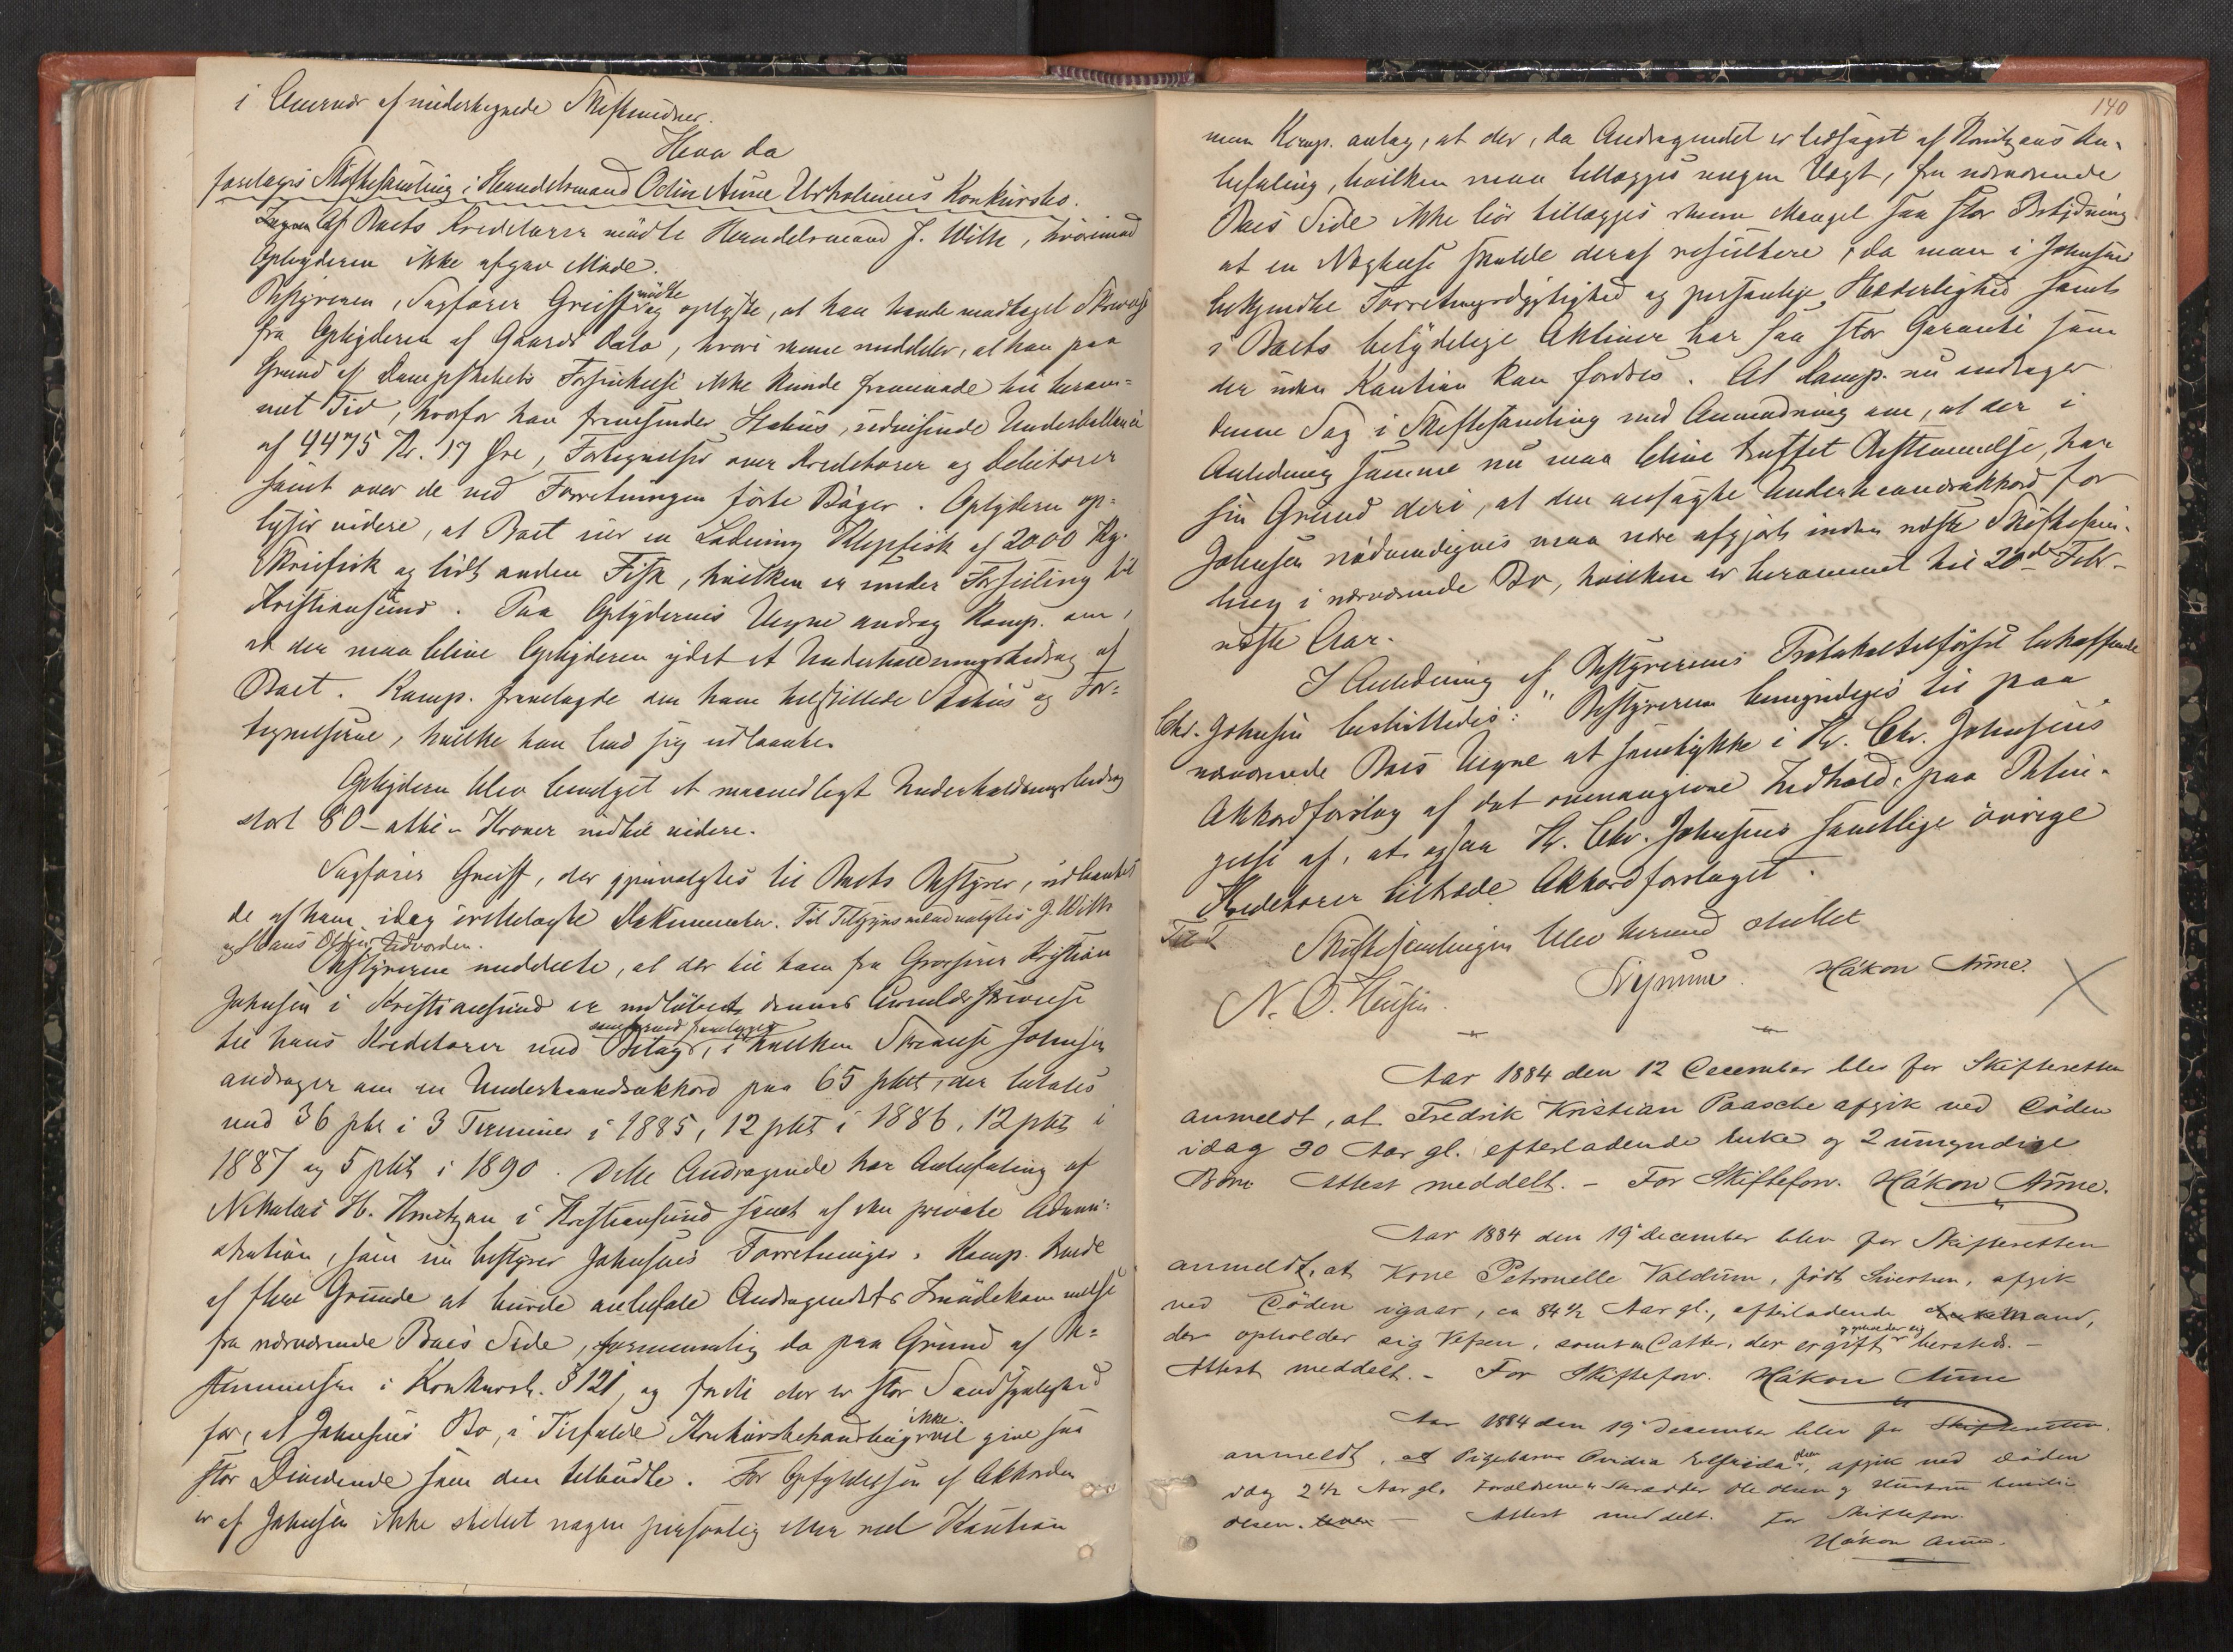 i Overvær af undertegnede Skiftevidner.
Hvor da
foretages Skiftesamling i Handelsmand Odin Aune Urholmens Konkursbo.
Af Boets Kreditorer mødte Handelsmand J. With, hvorimod
Opbyderen ikke afgav Møde.
Bestyreren, Sagfører Greiff mødte og oplyste, at han havde modtaget Skrivelse
fra Opbyderen af Gaards Dato, hvori denne meddeler, at han paa
Grund af Dampskibets Forsinkelse ikke kunde fremmøde til beram-
met Tid, hvorfor han fremsender Status, udvisende Underballance
af 4475 Kr. 17 Øre, Fortegnelse over Kreditorer og Debitorer
samt over de ved Forretningen førte Bøger. Opbyderen op-
lyser videre, at Boet eier en Ladning Klipfisk af 2000 Kg.
og lidt anden Fisk, hvilken er under Forseiling til
Kristiansund. Paa Opbyderens Vegne androg Komp. om,
at der maa blive Opbyderen ydet et Underholdningsbidrag af
Boet. Komp. fremlagde den ham tilstillede Status og For-
tegnelserne, hvilke han bad sig udlaante.
Opbyderen blev bevilget et maanedligt Underholdningsbidrag
stort 80 - otti - Kroner indtil videre.
Sagfører Greiff, der gjenvalgtes til Boets Bestyrer, udlaantes
de af ham idag irettelagte Dokumenter. Til Tilsynsmænd valgtes J. With
og Hans Olsen
Bestyreren meddelte, at der til ham fra Grosserer Kristian
Johnsen i Kristiansund er indløbet dennes Skrivelse
til hans Kreditorer med Bilag, som herved fremlægges, i hvilken Skrivelse Johnsen
andrager om en Underhaandsakkord paa 65 pkt, der betales
med 36 pkt i 3 Terminer i 1885, 12 pkt i 1886, 12 pkt i
1887 og 5 pkt i 1890. Dette Andragende har Anbefaling af
Nikolai H. Knudtzon i Kristiansund samt af den private Admini-
stration, som nu bestyrer Johnsens Forretninger. Komp. troede
af flere Grunde at burde anbefale Andragendets Imødekommelse
fra nærværende Boes Side, fornemmelig da paa Grund af Be-
stemmelsen i Konkursl. § 121, og fordi der er stor Sandsynlighed
for, at Johnsens Bo, i Tilfælde Konkursbehandling, ikke vil give saa
stor Dividende som den tilbudte. For Opfyldelsen af Akkorden
er af Johnsen ikke stillet nogen personlig eller reel Kaution
140
men Komp. antog, at der, da Andragendet er ledsaget af Knudtzons An-
befaling, hvilken maa tillægges megen Vægt, fra nærværende
Boes Side ikke bør tillægges denne Mangel saa stor Betydning
at en Nægtelse skulde deraf resultere, da man i Johnsens
bekjendte Forretningsdygtighed og personlige Hæderlighed samt
i Boets betydelige Aktiver har saa stor Garanti som
der uden Kaution kan fordres. At Komp. nu andrager
denne Sag i Skiftesamling med Anmodning om, at der i
Anledning samme nu maa blive truffet Bestemmelse, har
sin Grund deri, at den ansøgte Underhaandsakkord for
Johnsen nødvendigvis maa være afgjort inden næste Skiftesam-
ling i nærværende Bo, hvilken er berammet til 20de Febr.
næste Aar.
I Anledning af Bestyrerens Protokoltilførsel betræffende
Chr. Johnsen besluttedes: "Bestyreren bemyndiges til paa
nærværende Boes Vegne at samtykke i Hr. Chr. Johnsens
Akkordforslag af det ovenangivne Indhold, paa Betin-
gelse af, at ogsaa Hr. Chr. Johnsens samtlige øvrige
Kreditorer tiltræde Akkordforslaget.
Skiftesamlingen blev hermed sluttet
N. O. Hansen. Håkon Aune.
Aar 1884 den 12 December blev for Skifteretten
anmeldt, at Fredrik Kristian Paasche afgik ved Døden
idag 30 Aar gl. efterladende Enke og 2 umyndige
Børn. Attest meddelt. - For Skifteforv. Håkon Aune.
Aar 1884 den 19 December blev for Skifteretten
anmeldt, at Kone Petronelle Valdum, født Sivertsen, afgik
ved Døden igaar, ca 84 1/2 Aar gl., efterladende Mand,
der opholder sig Vefsen, samt en Datter, der er gift og opholder sig hersteds. -
Attest meddelt. - For Skifteforv. Håkon Aune
Aar 1884 den 19 December blev for Skifteretten
anmeldt, at Pigebarn Ovidia Elfrida Olsen, afgik ved Døden
idag 2 1/2 Aar gl. Forældrene er Skrædder Ole Olsen og Hustru
Olsen. - Attest meddelt. For Skifteforv.
Håkon Aune.